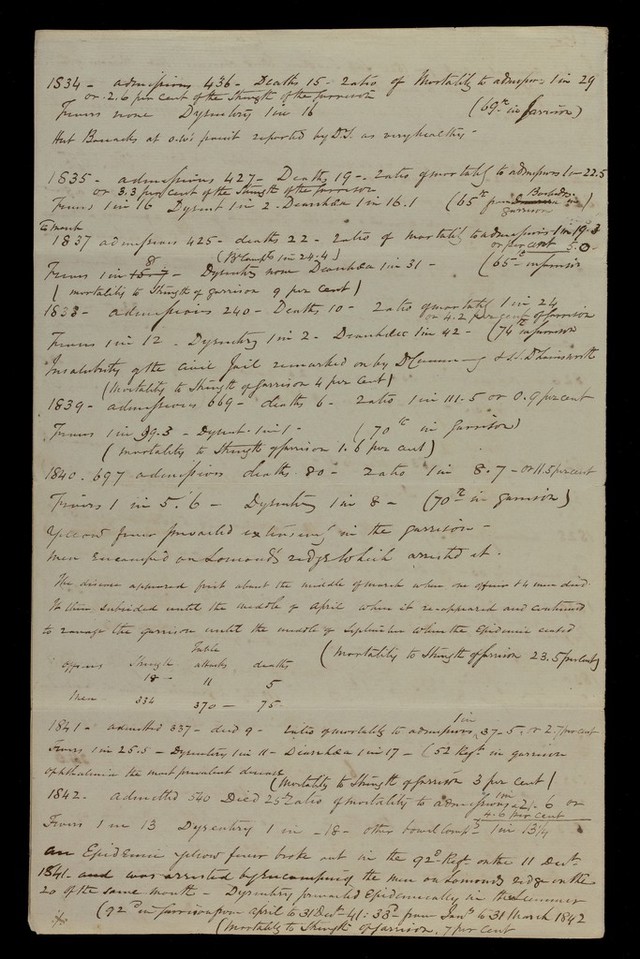 1834 - admissions 436 - Deaths 15 - Ratio of Mortality to admissions 1 in 29
or 2.6 per cent of the Strength of the Garrison
Fevers none Dysentery 1 in 16 (69th in Garrison)
Hut Barracks at point reported by as very healthy -
1835 - admissions 427 - Deaths 19 - Ratio of mortality to admissions 1 in 22.5
or 3.3 per cent of the Strength of the Garrison
Fevers 1 in 16 Dysent 1 in 2 - Diarrhea 1 in 16.1 (65th from Barbados in)
garrison
1837 admissions 425 - deaths 22 - Ratio of mortality to admissions 1 in 19.3
or per cent 5.0
(Bl Complts 1 in 24.4)
Fevers 1 in 8 - Dysentery none Diarrhea 1 in 31 - (65th in Garrison
(mortality to Strength of garrison 9 per cent)
1838 - admissions 240 - Deaths 10 - Ratio of mortality 1 in 24
or 4.2 per cent of Garrison
Fevers 1 in 12 - Dysentery 1 in 2 - Diarrhea 1 in 42 - (74th in Garrison
Insalubrity of the Civil Jail remarked on by Dr & Dr
(Mortality to Strength of Garrison 4 per cent)
1839 - admissions 669 - deaths 6 - Ratio 1 in 111.5 or 0.9 per cent
Fevers 1 in 39.3 - Dysent - 1 in 1 - (70th in Garrison)
(mortality to Strength of Garrison 1.6 per cent)
1840 - 697 admissions deaths 80 - Ratio 1 in 8.7 - or 11.5 per cent
Fevers 1 in 5.6 - Dysentery 1 in 8 - (70th in Garrison)
Yellow fever prevailed extensively in the garrison -
men encamped on Lomonds ridge which arrested it -
The disease appeared first about the middle of march when one officer & 4 men died
It then subsided until the middle of April when it reappeared and continued
to ravage the garrison until the middle of September when the Epidemic ceased
Table (Mortality to Strength of Garrison 23.5 per cent)
Officers Strength attacks deaths
18 - 11 5
Men 334 370 - 75
1841 - admitted 337 - died 9 - Ratio of mortality to admissions 1 in 37.5, or 2.7 per cent
Fevers 1 in 25.5 - Dysentery 1 in 11 - Diarrhea 1 in 17 - (52 Regt in garrison
ophthalmia the most prevalent disease
(Mortality to Strength of Garrison 3 per cent)
1842 - admitted 540 Died 25 Ratio of mortality to admissions 1 in 21.6 or
4.6 per cent
Fevers 1 in 13 Dysentery 1 in 18 - other bowel Complts 1 in 13 1/4
an Epidemic yellow fever broke out in the 92d Regt on the 11 Decr
1841 - and was arrested by encamping the men on Lomonds ridge on the
20 of the same month - Dysentery prevailed Epidemically in the summer
(92d in Garrison from april to 31 Decr 41 : 33d from Jany to 31 March 1842
(Mortality to Strength of Garrison - 7 per cent